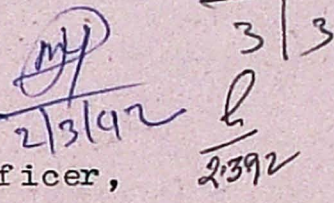 3/3
2/3/92
2.3.92
ficer,